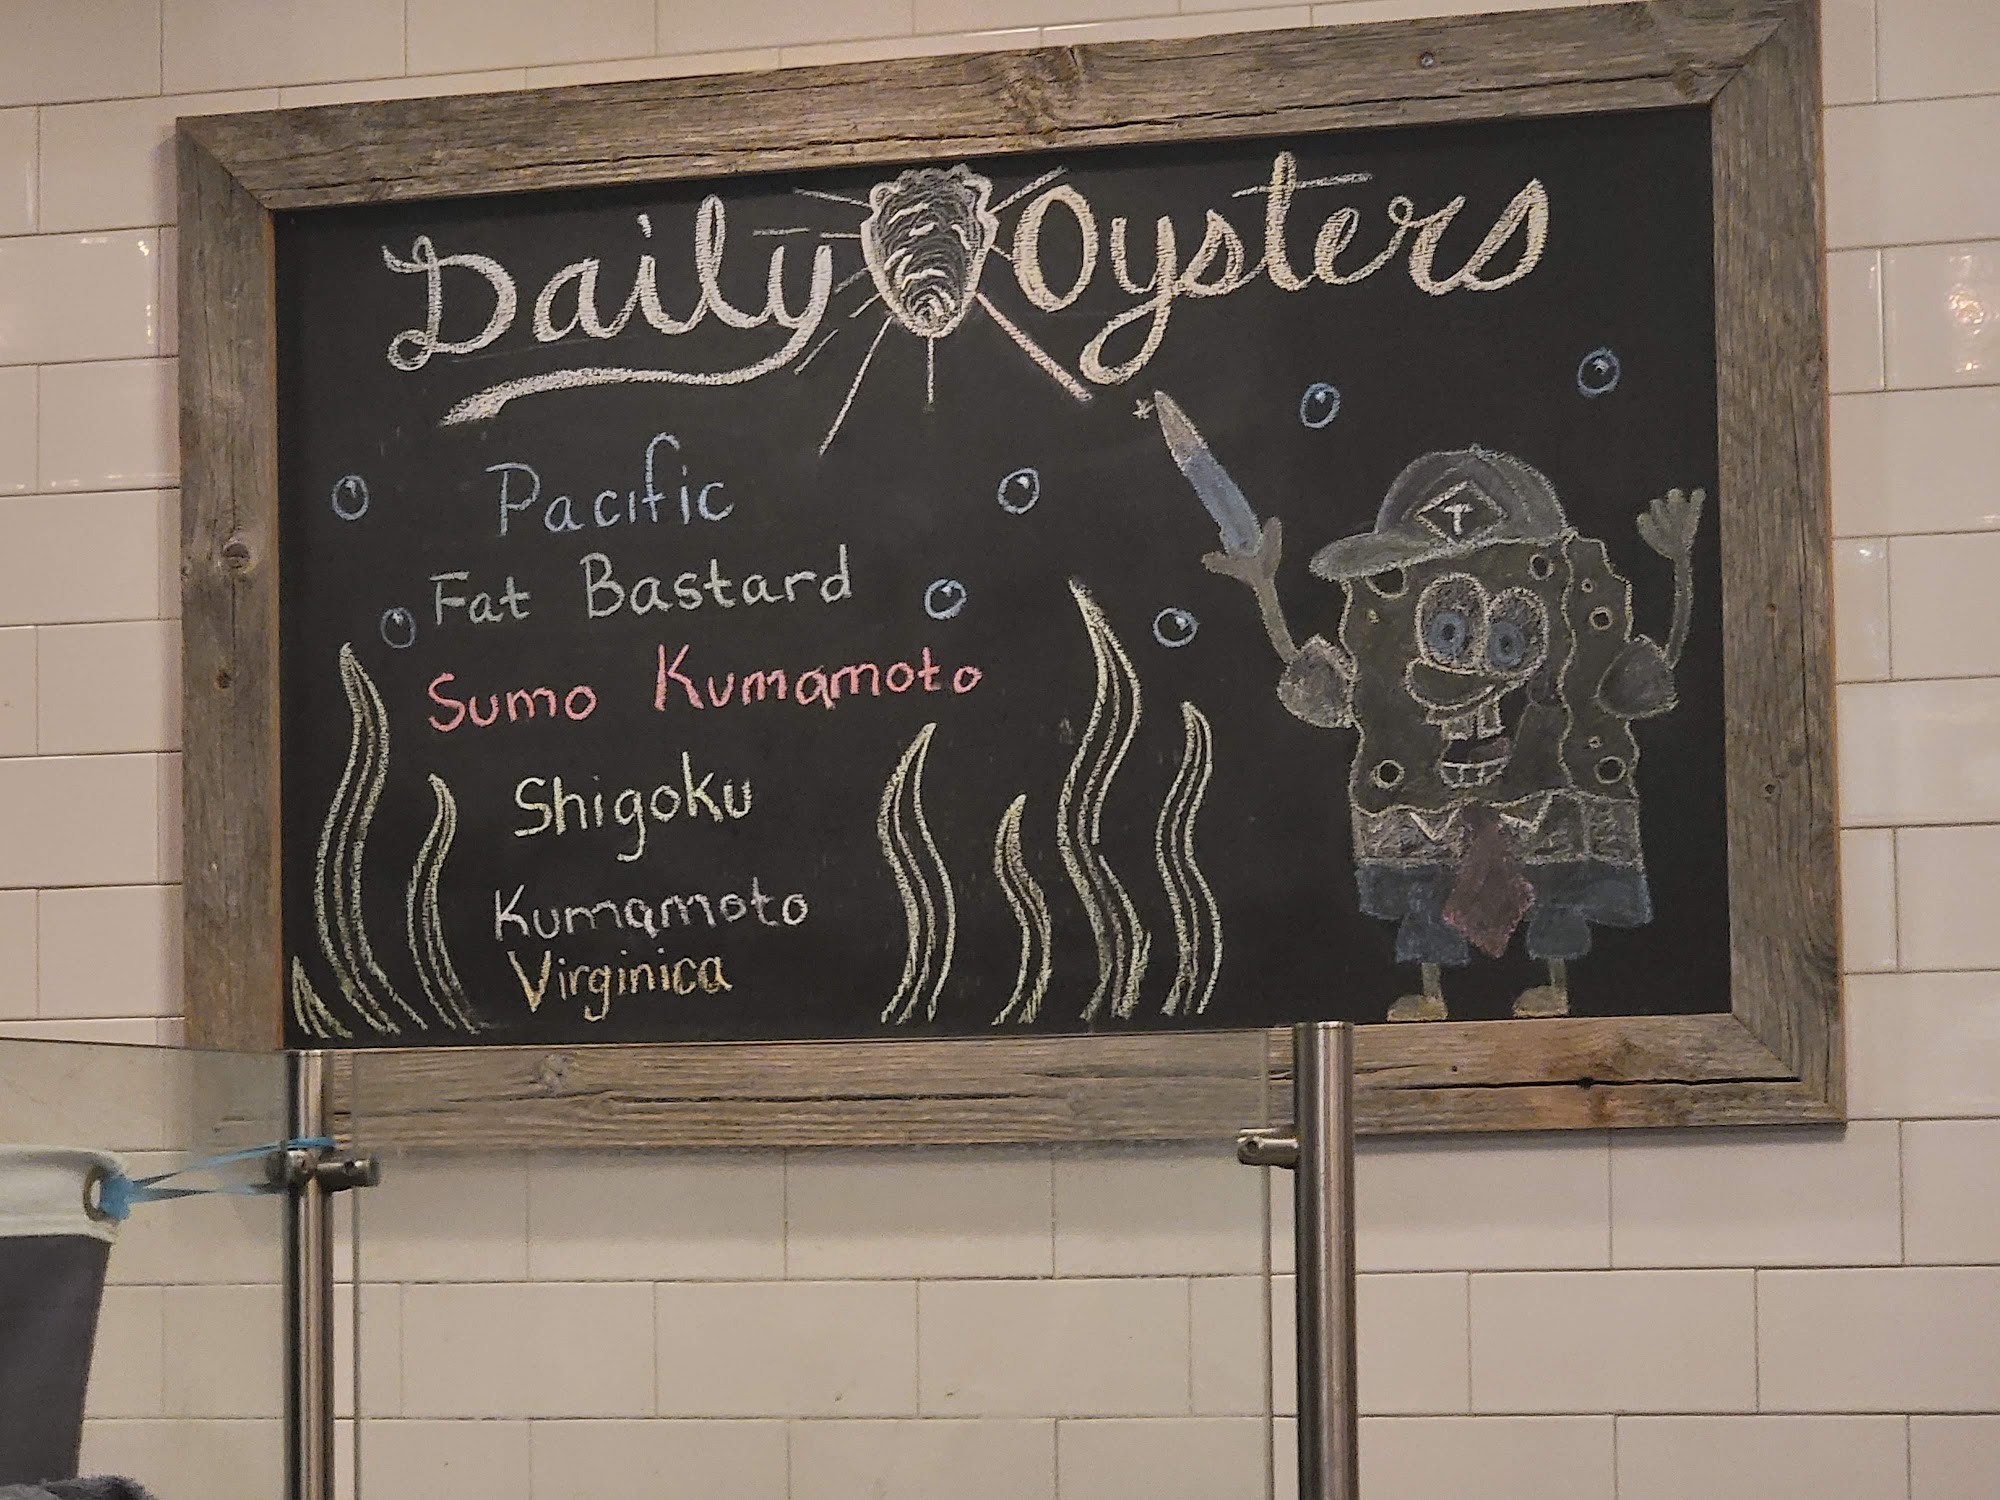 Daily Oysters
Pacific
Fat Bastard
Sumo Kumamoto
Shigoku
Kumamoto
Virginica
T